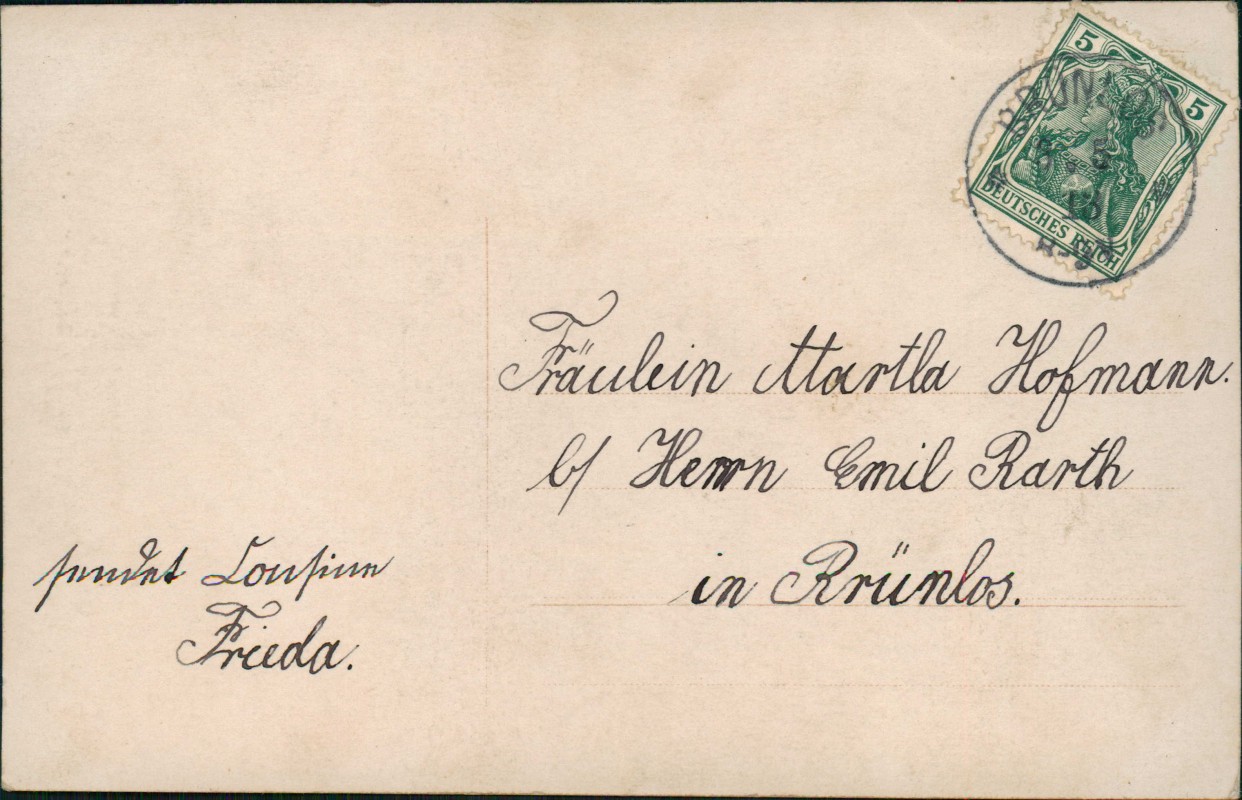 5 5
DEUTSCHES REICH
5. 5
Fräulein Martha Hofmann.
b/ Herrn Emil Barth
in Brünlos.
sendet Cousine
Frieda.